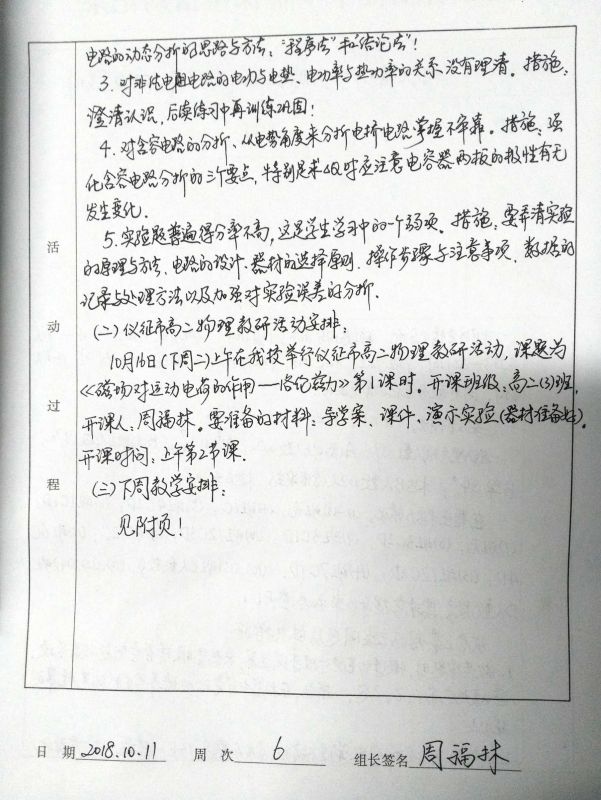 电路的动态分析的思路与方法：“程序法”和“结论法”！
3. 对非纯电阻电路的电功与电热、电功率与热功率的关系没有理清。措施：
澄清认识，后续练习中再训练巩固！
4. 对含容电路的分析、从电势角度来分析电桥电路掌握不牢靠。措施：强
化含容电路分析的三个要点，特别是求△Q时应注意电容器两板的极性有无
发生变化．
5. 实验题普遍得分率不高，这是学生学习中的一个弱项。措施：要弄清实验
的原理与方法、电路的设计、器材的选择原则、操作步骤与注意事项、数据的
记录与处理方法以及加强对实验误差的分析．
(二)仪征市高二物理教研活动安排：
10月16日(下周二)上午在我校举行仪征市高二物理教研活动，课题为
《磁场对运动电荷的作用——洛伦兹力》第1课时。开课班级：高二(3)班，
开课人：周福林。要准备的材料：导学案、课件、演示实验(器材准备好)。
开课时间：上午第2节课．
(三)下周教学安排：
见附页！
活
动
过
程
日 期 2018.10.11 周 次 6 组长签名 周福林